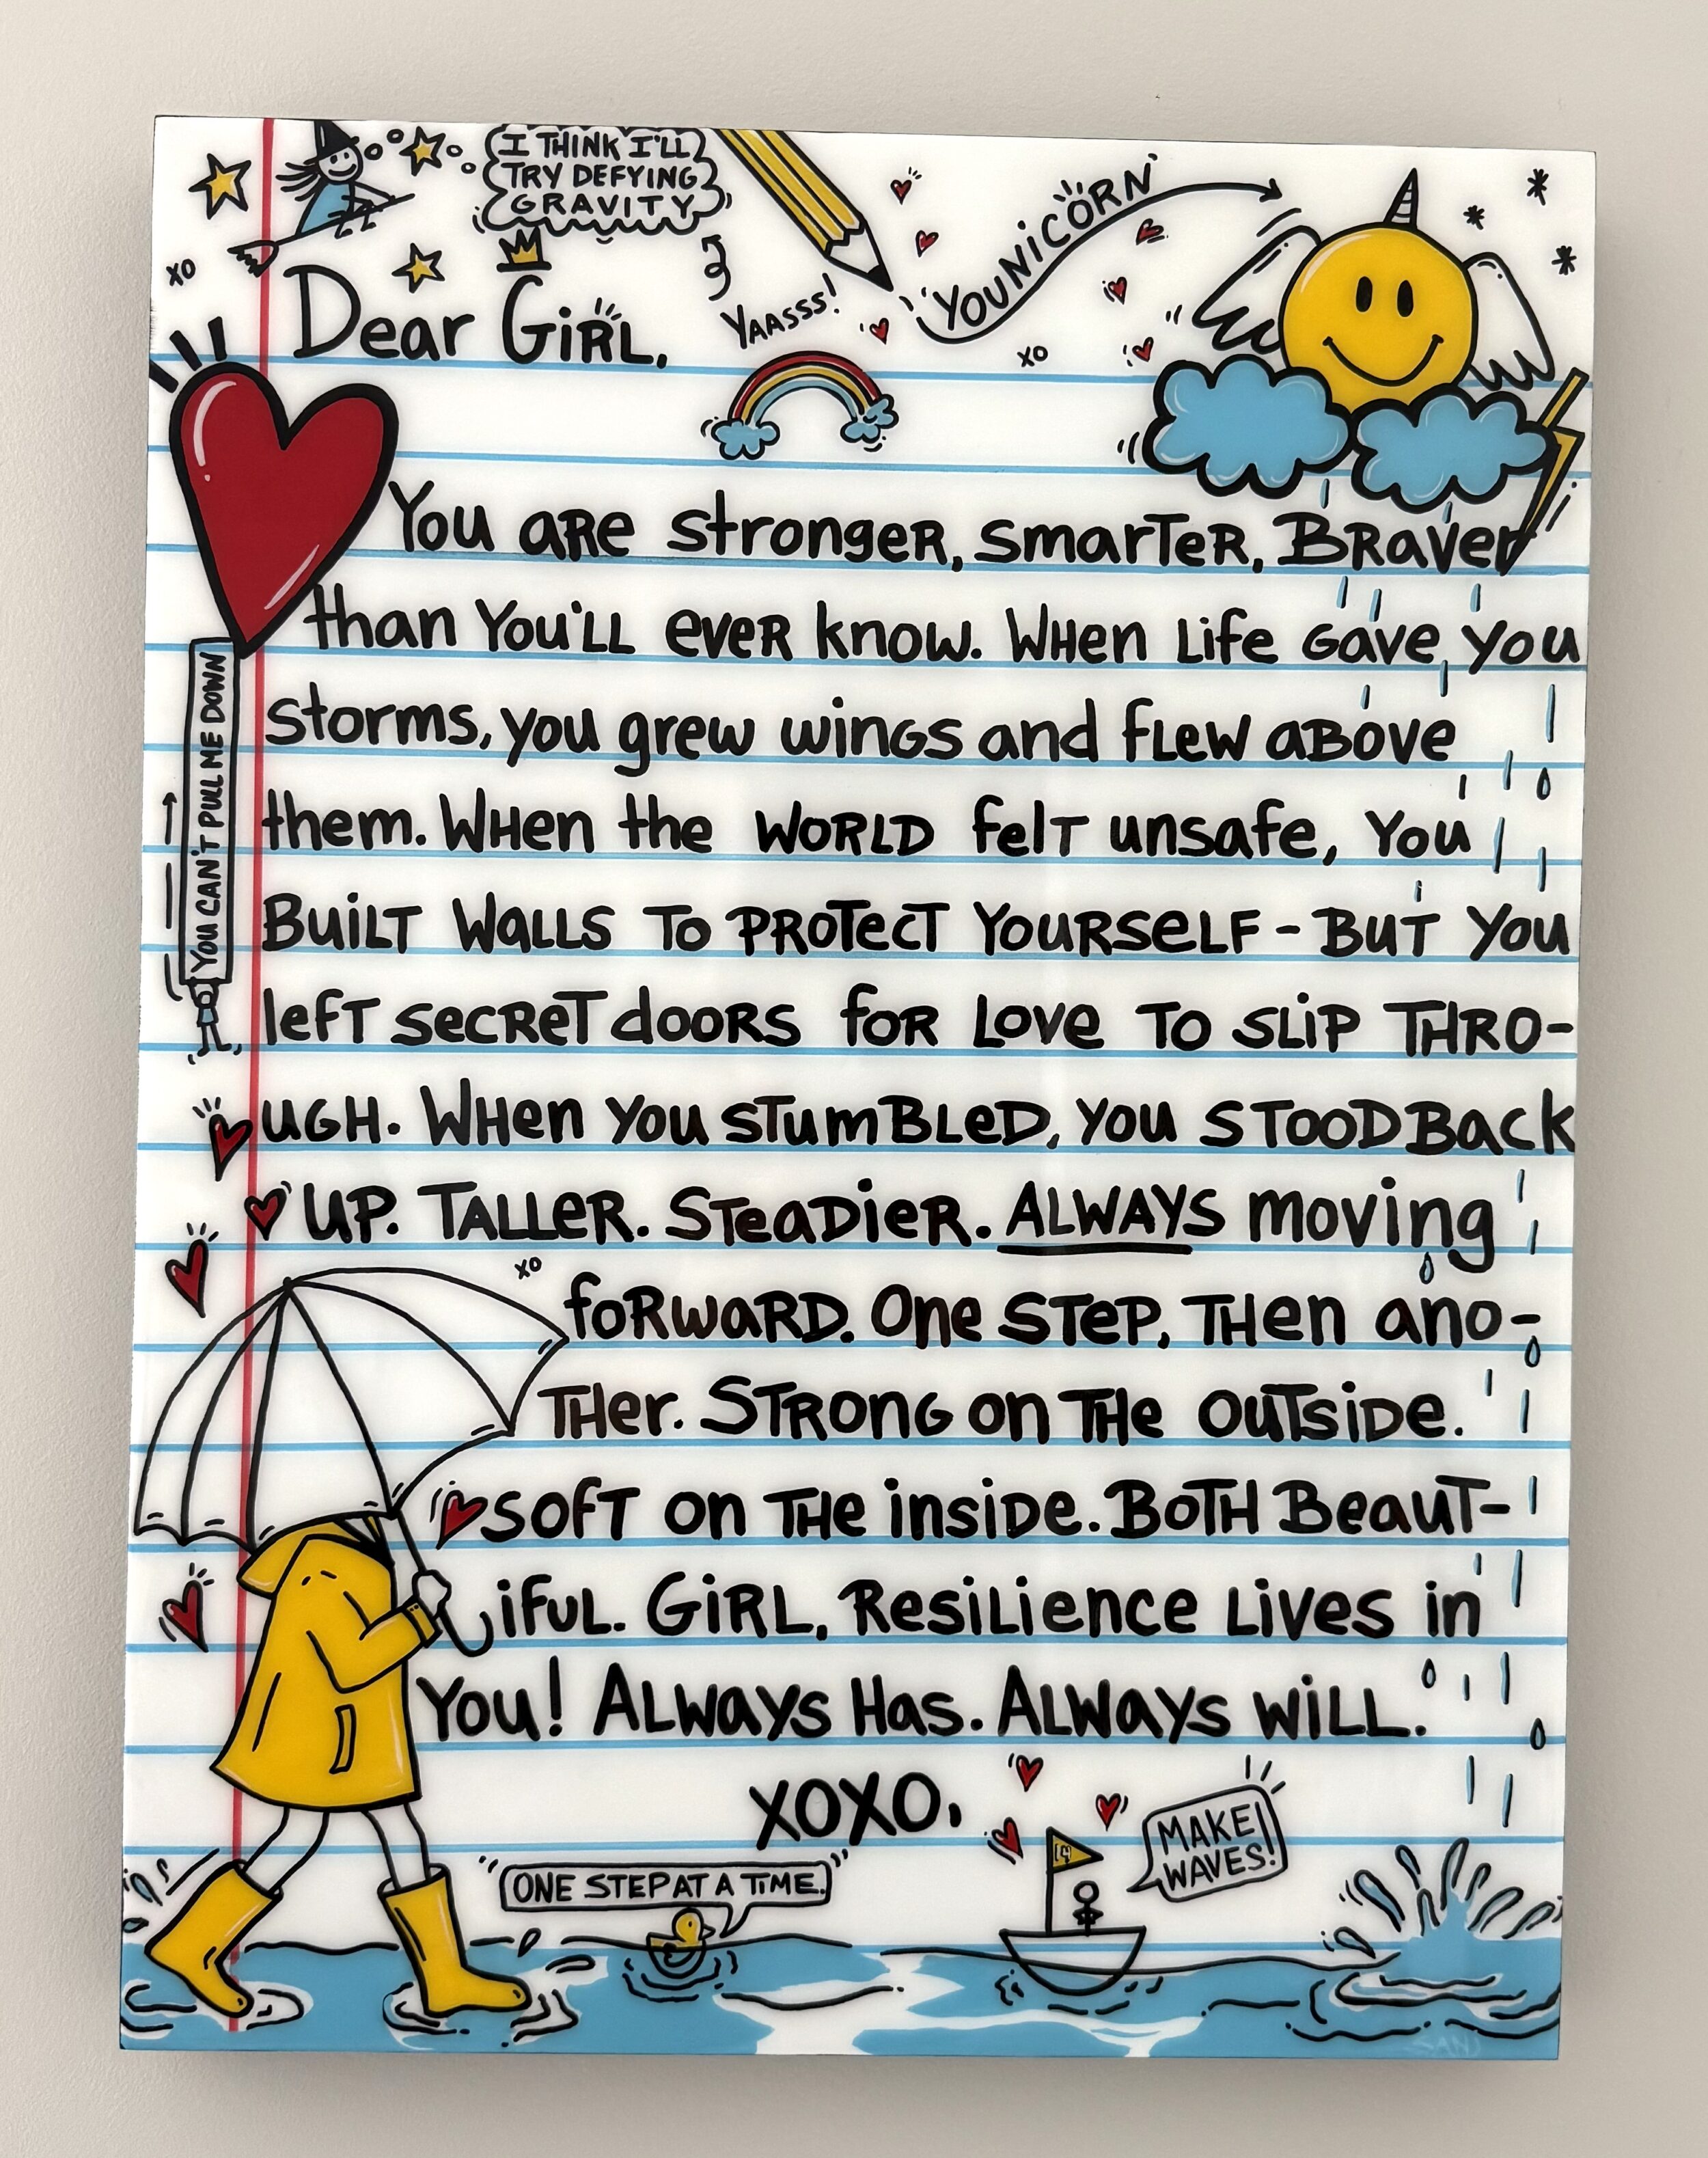 I THINK I'LL
TRY DEFYING
GRAVITY
XO
Dear GiRL,
YAASSS!
YOUNICORN
XO
You are stronger, smarter, Braver
than You'll ever know. When Life Gave you
storms, you grew wings and flew above
them. When the WORLD felt unsafe, You
Built Walls To PROTecT YOURSeLF - BuT You
left secret doors for Love To SLiP THRO-
UGH. When you STumBLeD, you STOOD Back
UP. TALLeR. STeaDieR. ALWAYS moving
forward. One STeP, THen ano-
THer. STRONG on THe OuTSiDe.
XO
soft on THe inside. BoTH BeauT-
iful. GiRL, Resilience Lives in
You! ALWays Has. ALWays WiLL.
XOXO,
YOU CAN'T PULL ME DOWN
"ONE STEP AT A TiME."
MAKE
WAVES!